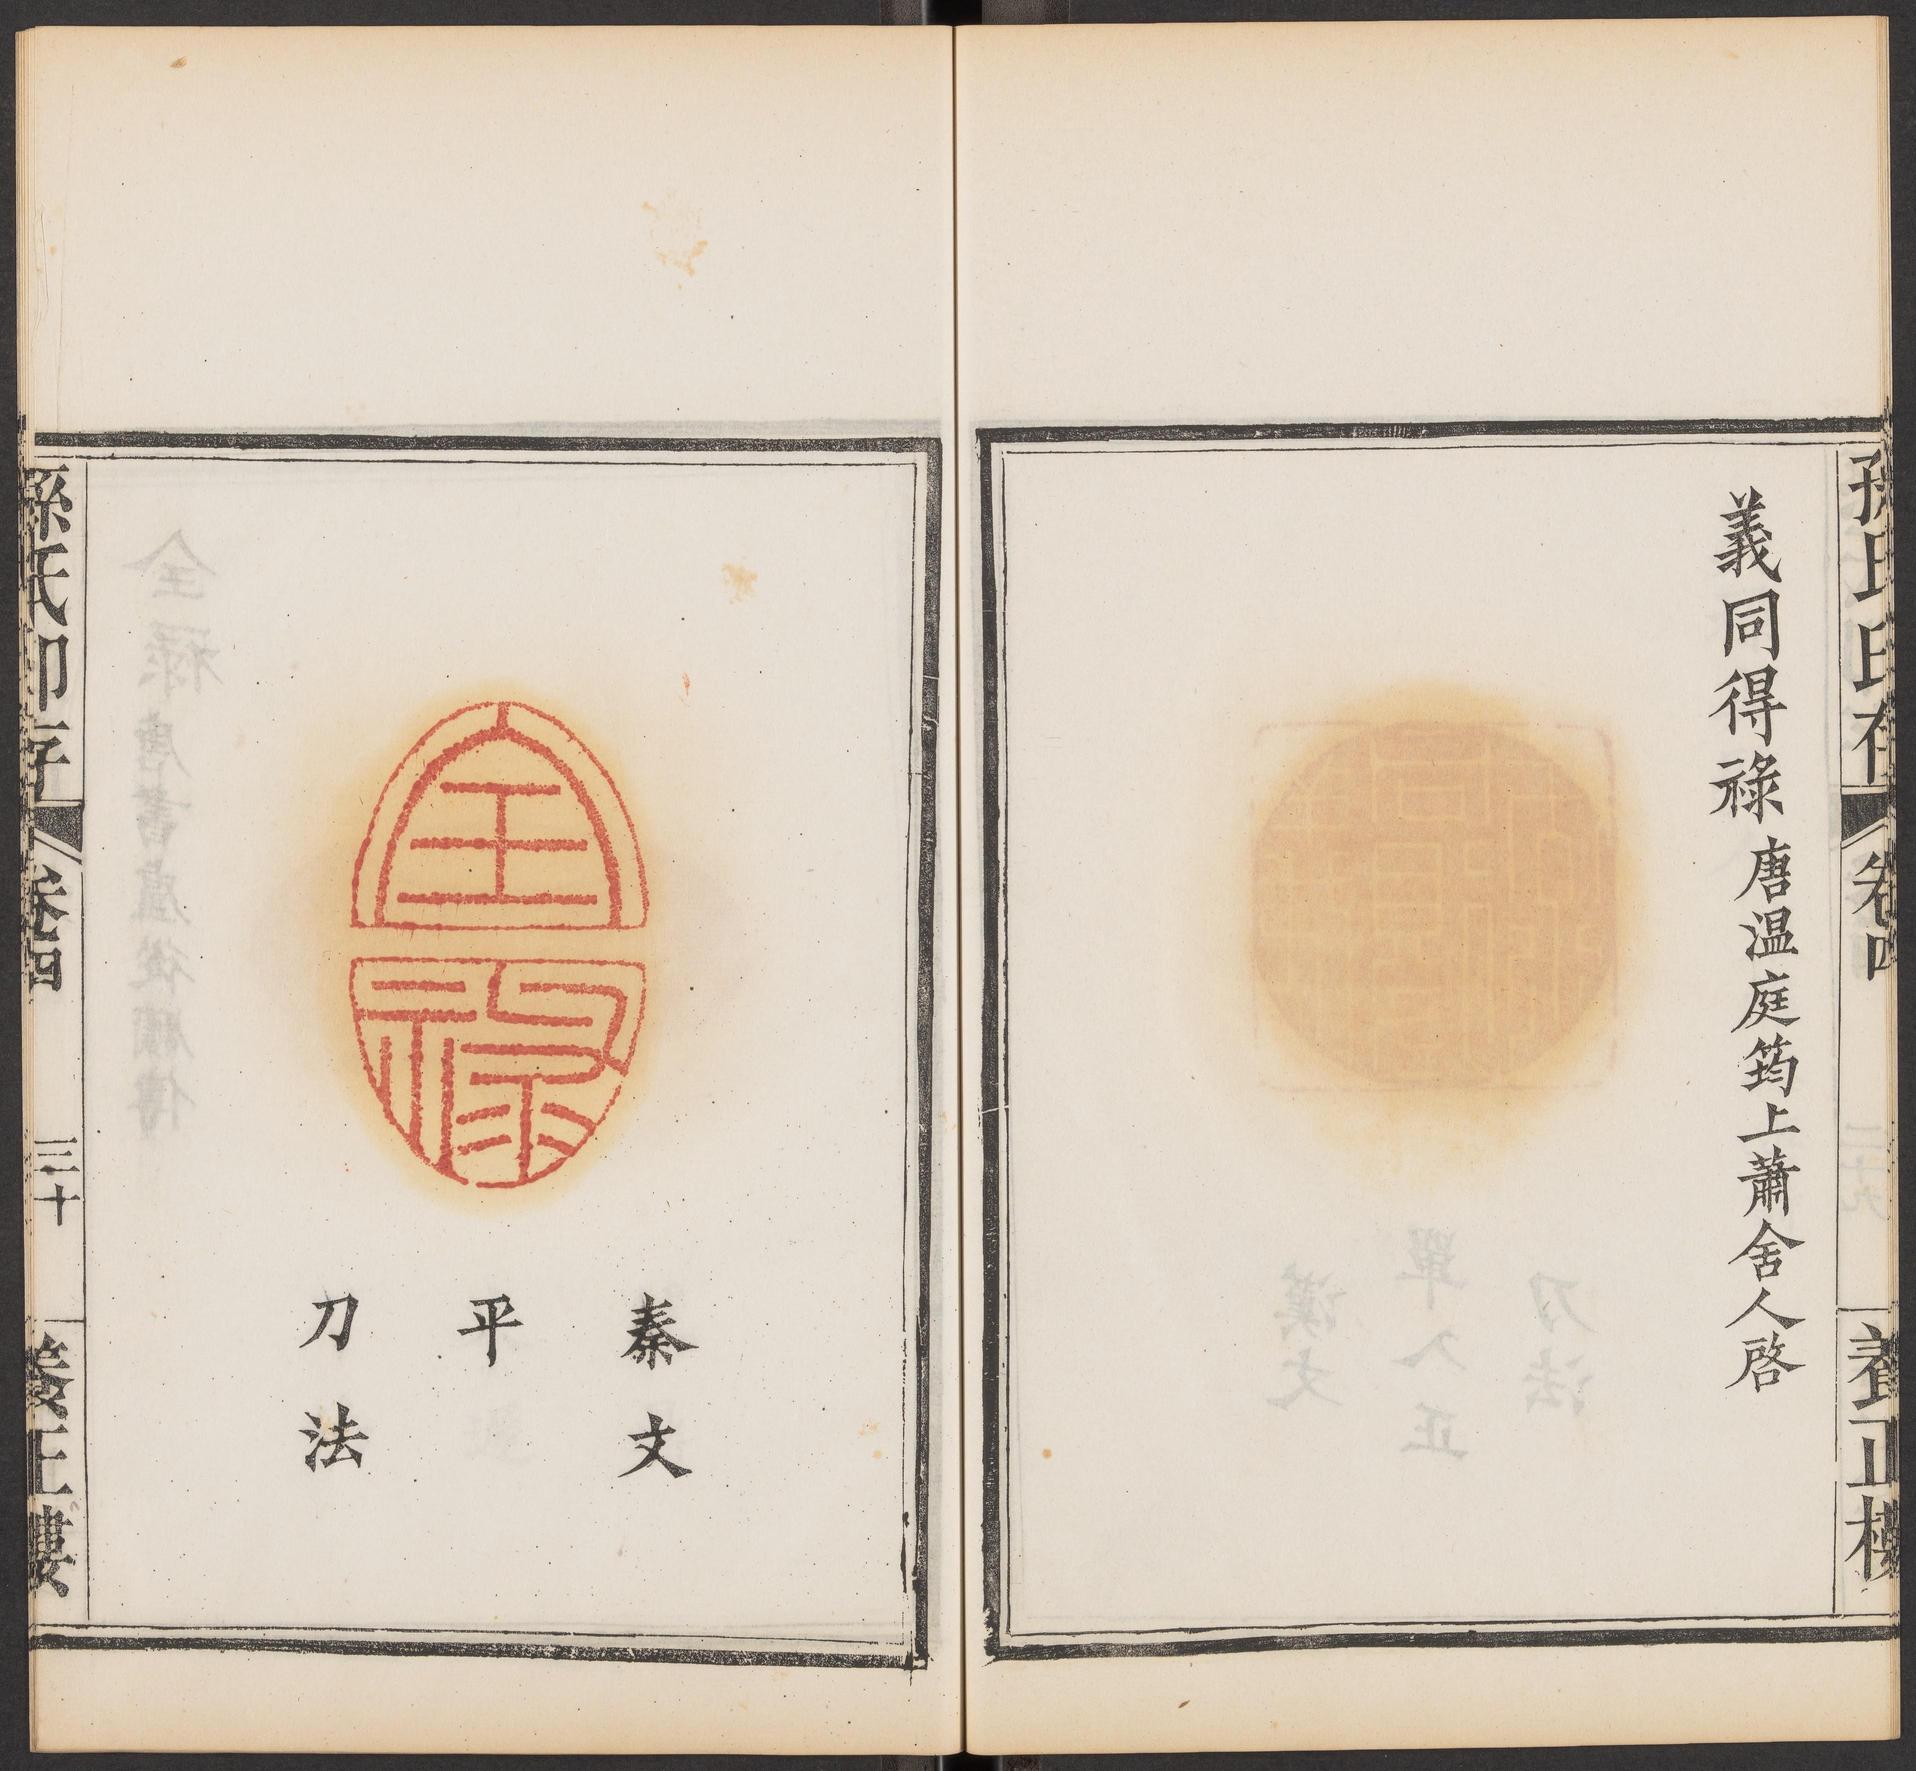 孫氏印存
卷四
養正樓
義同得祿 唐溫庭筠上蕭舍人啓
全祿
秦文
平
刀法
孫氏印存
卷四
三十
養正樓